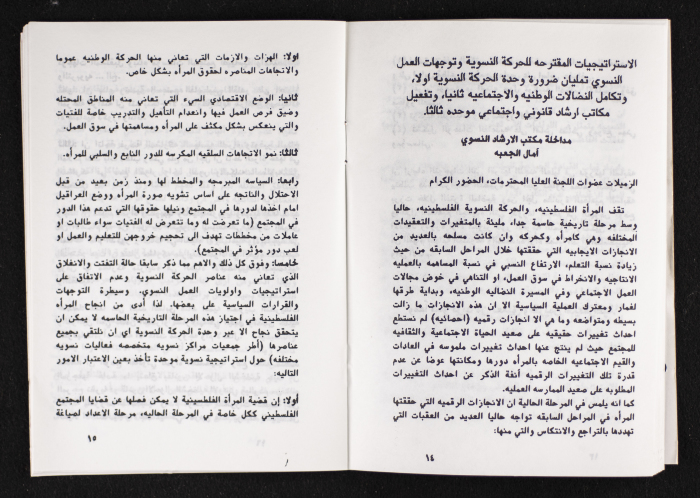 الاستراتيجيات المقترحه للحركة النسوية وتوجهات العمل
النسوي تمليان ضرورة وحدة الحركة النسوية اولا،
وتكامل النضالات الوطنيه والاجتماعيه ثانيا، وتفعيل
مكاتب ارشاد قانوني واجتماعي موحده ثالثا.
مداخلة مكتب الارشاد النسوي
آمال الجعبه
الزميلات عضوات اللجنة العليا المحترمات، الحضور الكرام
تقف المرأة الفلسطينيه، والحركة النسوية الفلسطينيه، حاليا
وسط مرحلة تاريخية حاسمة جدا، مليئة بالمتغيرات والتعقيدات
المختلفه وهي كأمرأه وكحركه وان كانت مسلحه بالعديد من
الانجازات الايجابيه التي حققتها خلال المراحل السابقه من حيث
زيادة نسبة التعلم، الارتفاع النسبي في نسبة المساهمه بالعمليه
الانتاجيه والانخراط في سوق العمل، او التناهي في خوض مجالات
العمل الاجتماعي وفي المسيرة النضاليه الوطنيه، وبداية طرقها
لغمار ومعترك العملية السياسية الا ان هذه الانجازات ما زالت
بسيطه ومتواضعه وما هي الا انجازات رقميه (احصائيه) لم نستطع
احداث تغييرات حقيقيه على صعيد الحياة الاجتماعية والثقافيه
للمجتمع حيث لم ينتج عنها احداث تغييرات ملموسه في العادات
والقيم الاجتماعيه الخاصه بالمرأه دورها ومكانتها عوضا عن عدم
قدرة تلك التغييرات الرقميه آنفة الذكر عن احداث التغييرات
المطلوبه على صعيد الممارسه العمليه.
كما انه يلمس في المرحلة الحالية ان الانجازات الرقميه التي حققتها
المرأه في المراحل السابقه تواجه حاليا العديد من العقبات التي
تهددها بالتراجع والانتكاس والتي منها:
١٤
اولا: الهزات والازمات التي تعاني منها الحركة الوطنيه عموما
والاتجاهات المناصره لحقوق المرأه بشكل خاص.
ثانيا: الوضع الاقتصادي السيء التي تعاني منه المناطق المحتله
وضيق فرص العمل فيها وانعدام التأهيل والتدريب خاصة للفتيات
والتي ينعكس بشكل مكثف على المرأه ومساهمتها في سوق العمل.
ثالثا: نمو الاتجاهات السلفيه المكرسه للدور التابع والسلبي للمرأه.
رابعا: السياسه المبرمجه والمخطط لها ومنذ زمن بعيد من قبل
الاحتلال والناتجه على اساس تشويه صورة المرأه ووضع العراقيل
امام اخذها لدورها في المجتمع ونيلها حقوقها التي تدعم هذا الدور
في المجتمع (ما تعرضت له وما تتعرض له الفتيات سواء طالبات او
عاملات من مخططات تهدف الى تحجيم خروجهن للتعليم والعمل او
لعب دور مؤثر في المجتمع).
خامسا: وفوق كل ذلك والاهم مما ذكر سابقا حالة التفتت والانغلاق
الذي تعاني منه عناصر الحركة النسوية وعدم الاتفاق على
استراتيجيات واولويات العمل النسوي. وسيطرة التوجهات
والقرارات السياسية على بعضها. لذا أدى من انجاح المرأه
الفلسطينية في اجتياز هذه المرحلة التاريخية الحاسمه لا يمكن ان
يتحقق نجاح الا عبر وحدة الحركة النسوية اي ان نلتقي بجميع
عناصرها (أطر جمعيات مراكز نسويه متخصصه فعاليات نسويه
مختلفه) حول إستراتيجية نسوية موحدة تأخذ بعين الإعتبار الامور
التاليه:
أولا: إن قضية المرأة الفلسطينية لا يمكن فصلها عن قضايا المجتمع
الفلسطيني ككل خاصة في المرحلة الحاليه، مرحلة الاعداد لصياغة
١٥